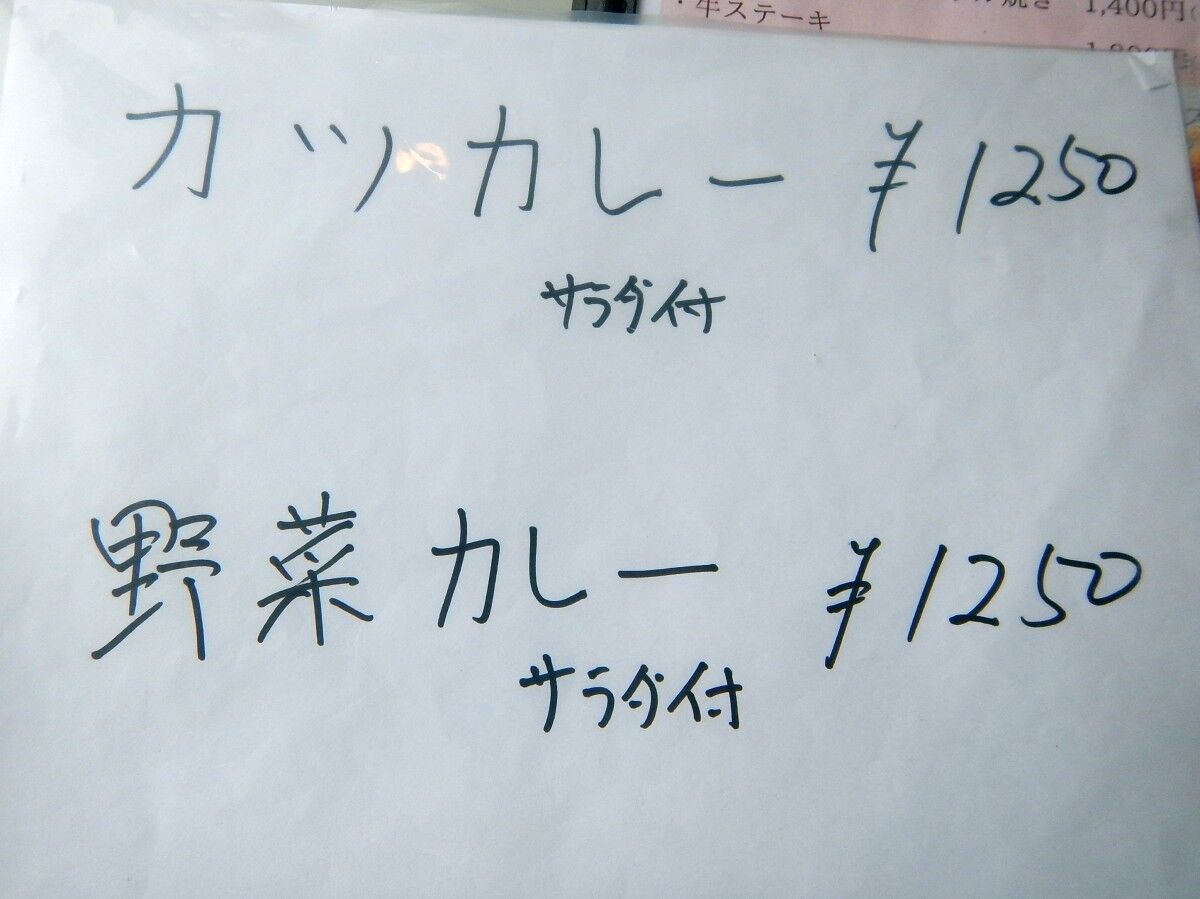 ・牛ステーキ
焼き 1,400円
カツカレー ¥1250
サラダ付
野菜カレー ¥1250
サラダ付